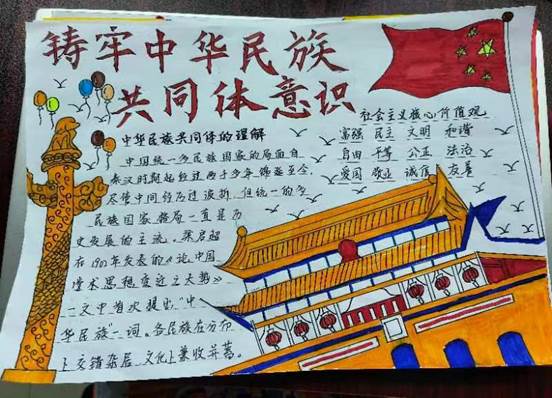 铸牢中华民族
共同体意识
中华民族共同体的理解
中国统一多民族国家的局面自
秦汉时期起经过两千多年绵延至今,
尽管中间经历过波折,但统一的多
民族国家格局一直是历
史发展的主流。梁启超
在1902年发表的《论中国
学术思想变迁之大势》
一文中首次提出"中
华民族"一词。各民族在分布
上交错杂居、文化上兼收并蓄。
社会主义核心价值观
富强 民主 文明 和谐
自由 平等 公正 法治
爱国 敬业 诚信 友善